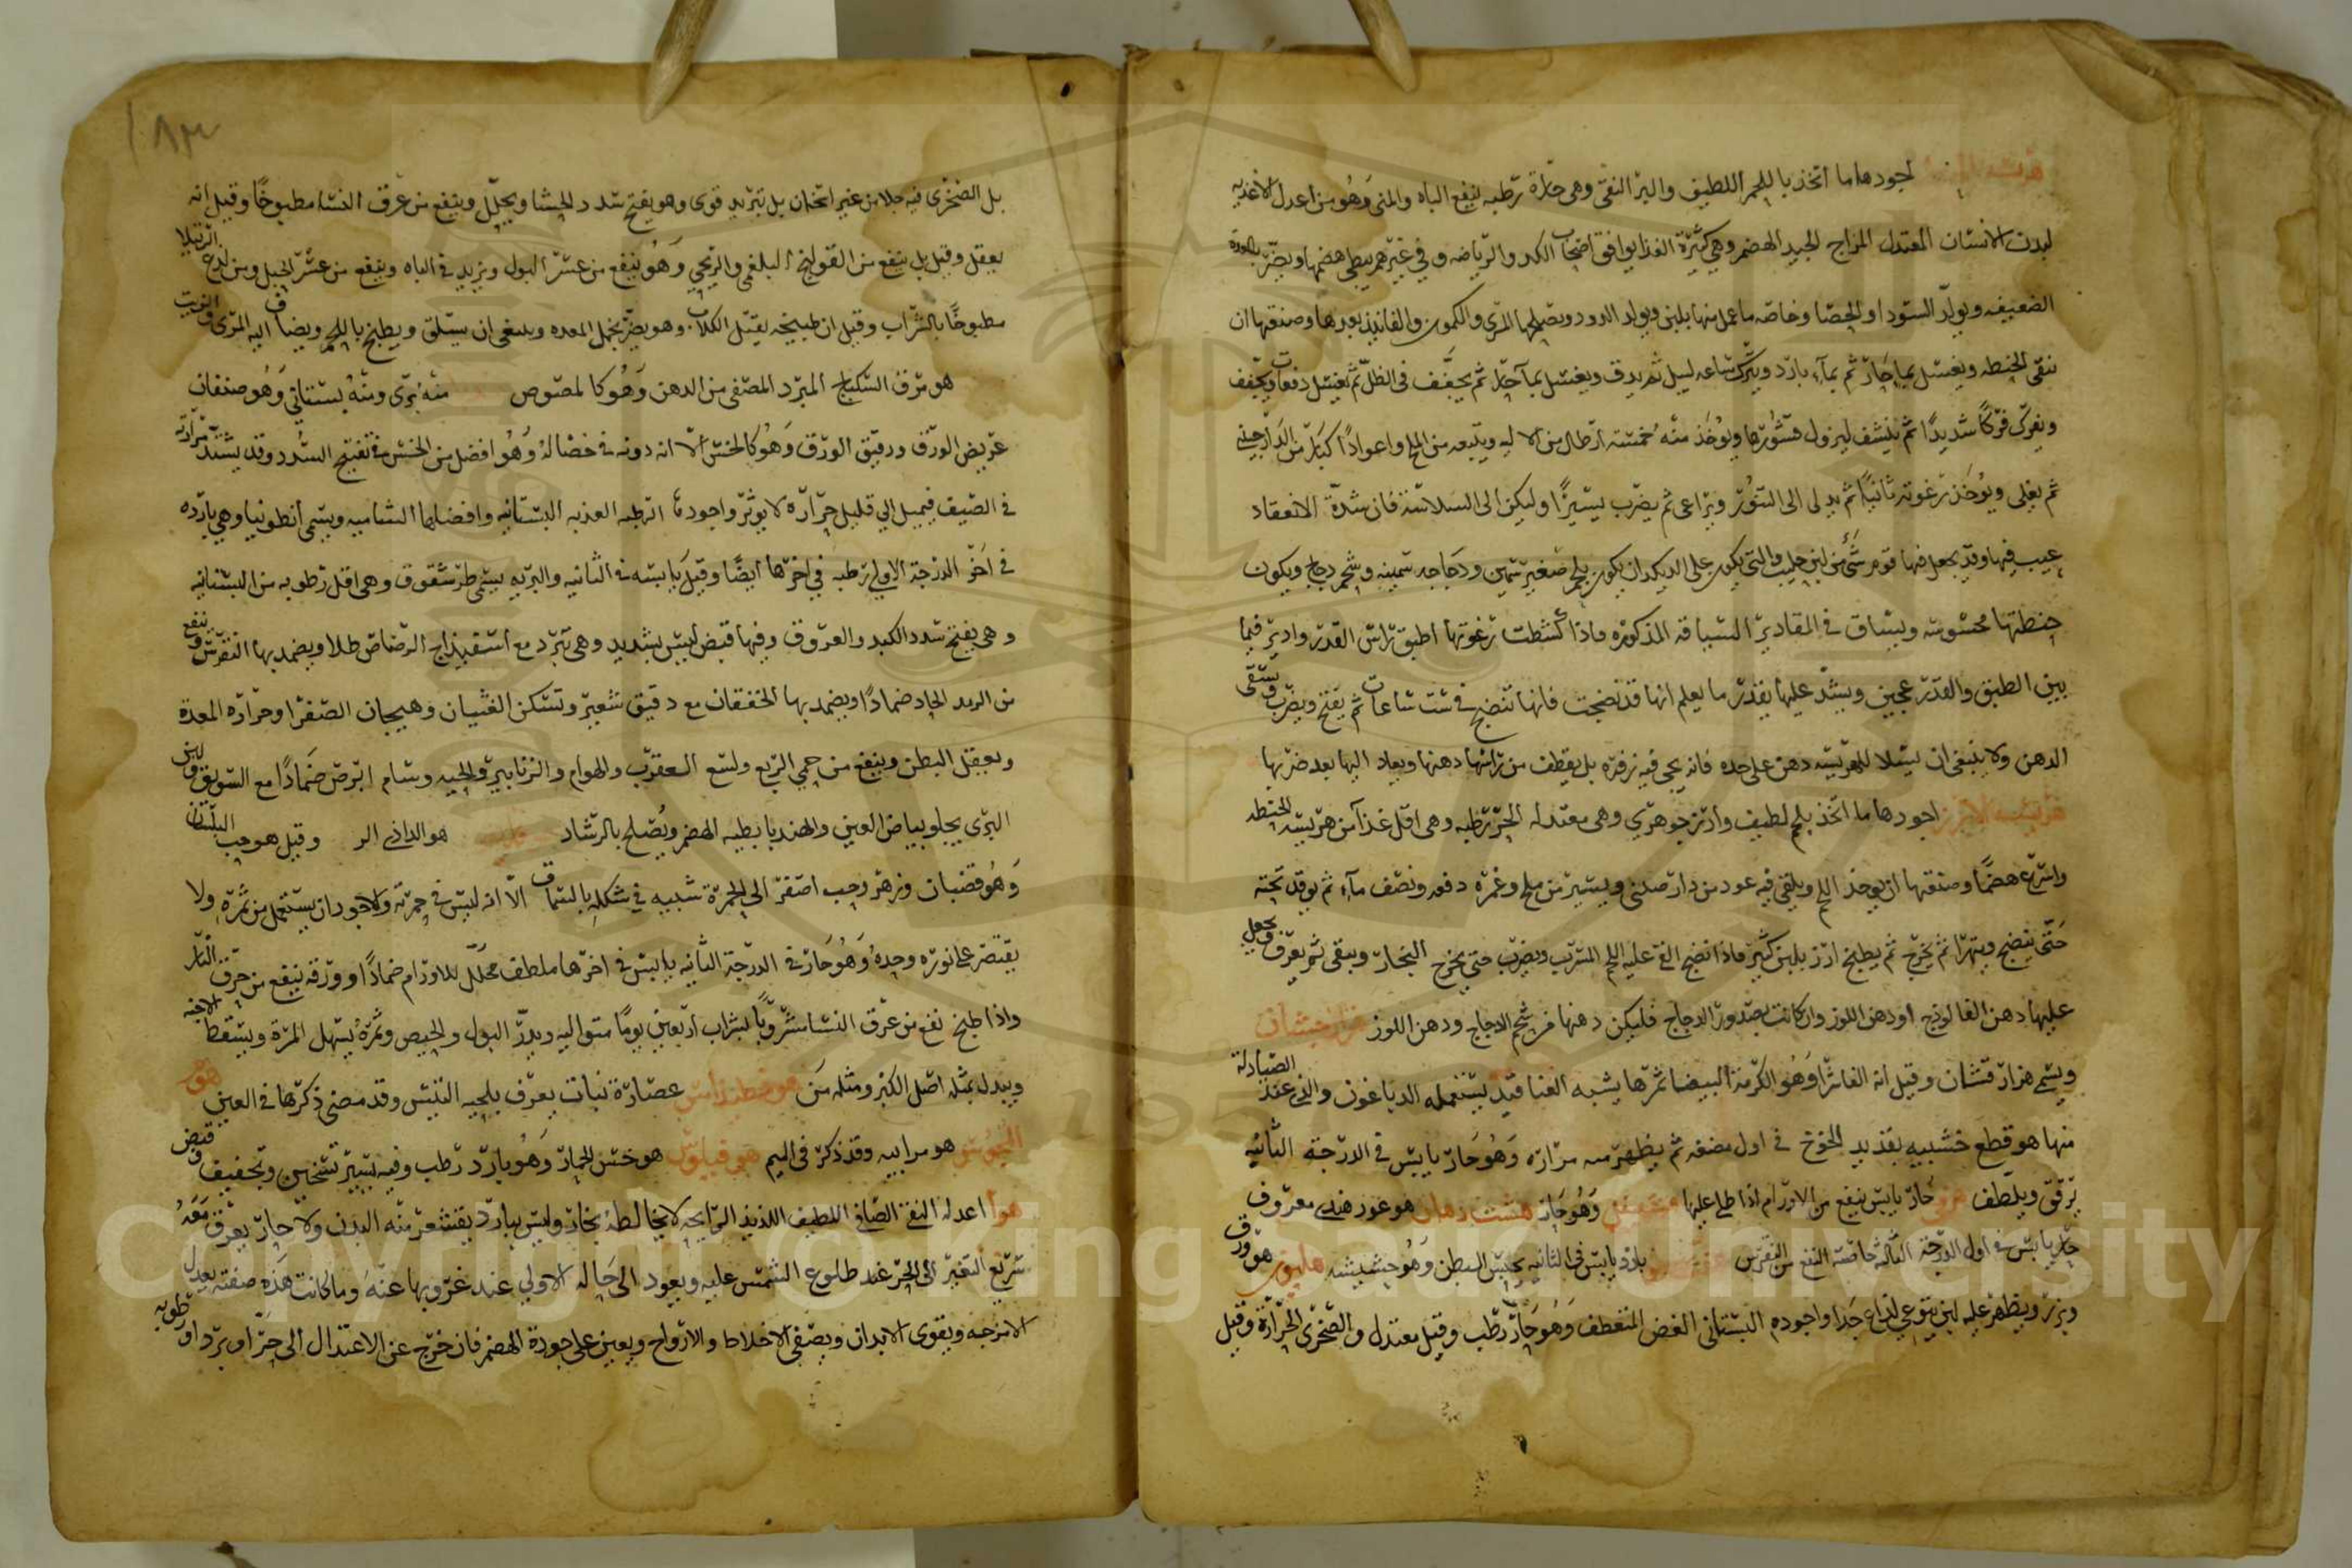 اجودها ما اتخذ باللحم اللطيف والبر النقي وهي حارة رطبه تنفع الباه والمنى وهو من اعدل الاغذيه
لبدن الانسان المعتدل المزاج الجيد الهضم وهي كثيرة الغذا يوافق اصحاب الكد والرياضه وفي غيرهم يبطى هضمها ويضر بالمعدة
الضعيفه ويولد السودا والحصا وخاصه ما عمل منها بلبن ويولد الدود ويصلحها المرى والكمون والفانيذ بعدها وصنعتها ان
ننقى الحنطه ويغسل بما حار ثم بماء بارد ويترك ساعه ليبل ثم يدق ويغسل بما حار ثم يجفف في الظل ثم يغسل دفعات ويجفف
ويفرك فركا شديدا ثم ينشف ليزول قشورها ويوخذ منه خمسة ارطال من الاليه ويتبعه من الملح واعوادا كبار من الدارصيني
ثم يغلى ويوخذ رغوته ثانيا ثم يدلى الى التنور ويراعى ثم يضرب يسيرا وليكن الى السلاسة فان شدة الانعقاد
عيب فيها وقد يجعل فيها قوم شئ من لبن حليب والتي يكون على الديكدان يكون بلحم صغير سمين ودجاجه سمينه وشحم دجاج ويكون
حنطتها محسوسه ويساق في المقادير السياقه المذكوره فاذا كشطت رغوتها اطبق راس القدر وادير فيما
بين الطبق والقدر عجين ويشد عليها بقدر ما يعلم انها قد نضجت فانها تنضج في ست ساعات ثم يفتح ويضرب ويسقى
الدهن ولا ينبغي ان يسلا للهريسه دهن على حده فانه يجى فيه زفره بل يقطف من راسها دهنها ويعاد اليها بعد ضربها
هريسه الارز اجودها ما اتخذ بلحم لطيف وارز جوهري وهى معتدله الحر رطبه وهى اقل غذآ من هريسة الحنطه
واسرع هضما وصنعتها ان يوخذ اللحم ويلقى فيه عود من دارصيني ويسير من ملح وغمره دفعه ونصف ماء ثم يوقد تحته
حتى ينضج ويتهرا ثم يخرج ثم يطبخ ارز بلبن كثير فاذا نضج القى عليه اللحم المسرب ويضرب حتى يخرج البخار ويبقى ثم يعرف ويجعل
عليها دهن الفالوذج او دهن اللوز وان كانت بصدور الدجاج فليكن دهنها من شحم الدجاج ودهن اللوز هزارجشان
ويسمى هزار قشان وقيل انه الفاشرا وهو الكرمة البيضا ثمرها يشبه العناقيد يستعمله الدباغون والذي عند الصيادلة
منها هو قطع خشبيه بقديد الخوخ في اول مضغه ثم يظهر منه مراره وهو حار يابس في الدرجة الثانيه
يرقق ويلطف حار يابس ينفع من الاورام اذا طلى عليها وهو حار هشت دهان هو عود هندي معروف
حار يابس في اول الدرجة الثالثه خاصته النفع من النقرس بارد يابس في الثانيه يحبس البطن وهو حشيشه هليون هو ورق
وبزر ويظهر عليه لبن يتوعي لذاع جدا واجوده البستاني الغض المنعطف وهو حار رطب وقيل معتدل والصخري الحرارة وقيل
١٨٣
بل الصخرى فيه جلا من غير اسخان بل تبريد قوى وهو يفتح سدد الحشا ويحلل وينفع من عرق النسا مطبوخا وقيل انه
يعقل وقيل بل ينفع من القولنج البلغمي والريحي وهو ينفع من عسر البول ويزيد في الباه وينفع من عسر الحبل ومن لدغ الرتيلا
مطبوخا بالشراب وقيل ان طبيخه يقتل الكلاب وهو يضر بخمل المعده وينبغى ان يسلق ويطبخ باللحم ويضاف اليه المرى والزيت
هو مرق السكباج المبرد المصفى من الدهن وهو كالمصوص منه برى ومنه بستاني وهو صنفان
عريض الورق ورقيق الورق وهو كالخس الا انه دونه في خصاله وهو افضل من الخس في تفتيح السدد وقد يشتد مرارته
في الصيف فيميل الى قليل حرارة لا يوثر واجودها الرطبه العذبه البستانيه وافضلها الشاميه ويسمى انطونيا وهى بارده
في اخر الدرجة الاولى رطبه في اخرها ايضا وقيل يابسه في الثانيه والبريه يسمى طرشقوق وهى اقل رطوبه من البستانيه
وهى يفتح سدد الكبد والعروق وفيها قبض ليس بشديد وهى تبرد مع اسفيذاج الرصاص طلا ويضمد بها النقرس وينفع
من الرمد الحار ضمادا ويضمد بها الخفقان مع دقيق شعير وتسكن الغثيان وهيجان الصفرا وحرارة المعدة
ويعقل البطن وينفع من حمى الربع ولسع العقرب والهوام والزنابير والحيه وسام ابرص ضمادا مع السويق ولبن
البرى يجلو بياض العين والهندبا بطيه الهضم ويصلح بالرشاد هو الداذي وقيل هو حب البلسان
وهو قضبان وزهر وحب اصفر الى الحمرة شبيه في شكله بالسماق الا انه ليس في حمرته والاجود ان يستعمل من ثمره ولا
يقتصر على نوره وحده وهو حار في الدرجة الثانيه يابس في اخرها ملطف محلل للاورام ضمادا وورقه ينفع من حرق النار
واذا طبخ نفع من عرق النسا مشروبا بشراب اربعين يوما متواليه ويدر البول والحيض وثمره يسهل المرة ويسقط الاجنه
ويبدل بمثله اصل الكبر ومثله من عصارة نبات يعرف بلحية التيس وقد مضى ذكرها في العين هو
المجوس هو مرانيه وقد ذكر في الميم هو خس الحمار وهو بارد رطب وفيه يسير تسخين وتجفيف وقبض
هوا اعدله النقى الصافي اللطيف اللذيذ الرايحه لا يخالطه بخار وليس ببارد يقشعر منه البدن ولا حار يعرق معه
سريع التغير الى الحر عند طلوع الشمس عليه ويعود الى حاله الاولي عند غروبها عنه وما كانت هذه صفته يعدل
الامزجه ويقوى الابدان ويصفى الاخلاط والارواح ويعين على جودة الهضم فان خرج عن الاعتدال الى حر او برد او رطوبه